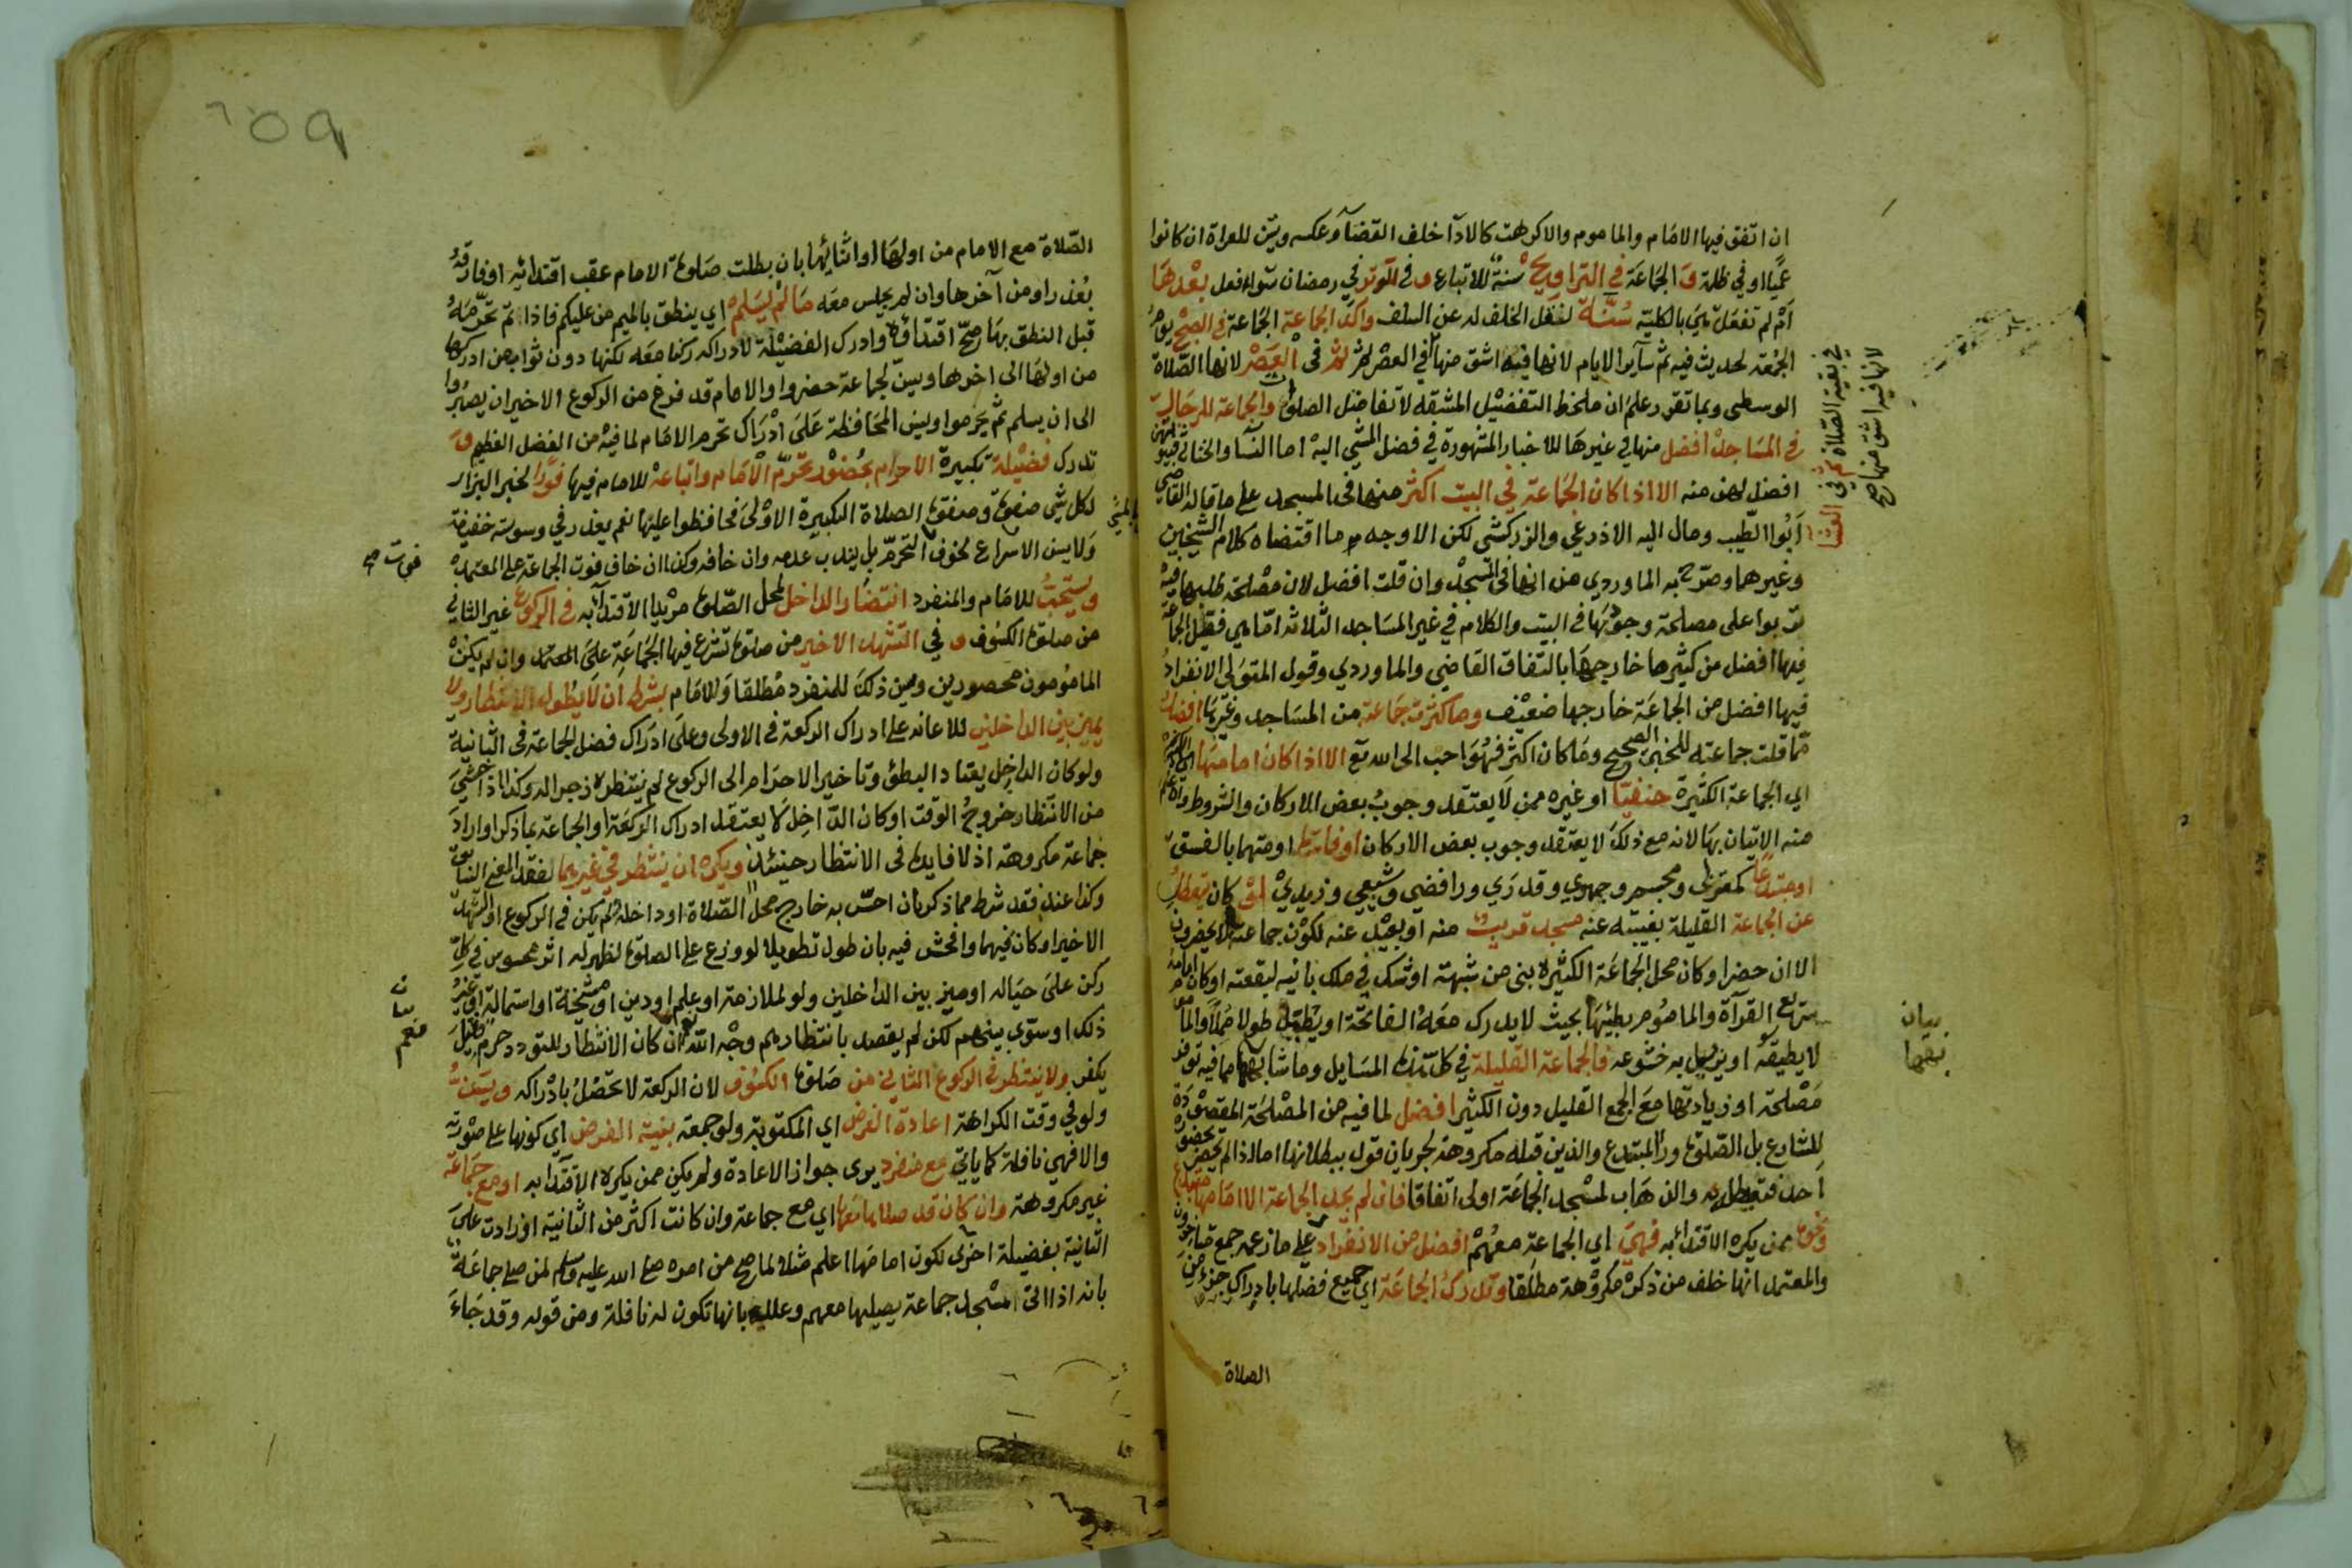 ان اتفق فيها الامام والماموم والاكرهت كالادآ خلف القضآ وعكسه ويسن للعراة ان كانوا
عميا او في ظلمة و الجماعة في التراويح سنة للاتباع و في الوتر في رمضان سواء فعل بعدها
ام لم تفعل هي بالكلية سنة لنقل الخلف له عن السلف واكد الجماعة الجماعة في الصبح يوم
الجمعة لحديث فيه ثم سآير الايام لانها فيه اشق منها في العصر ثم في العصر لانها الصلاة
الوسطى وبما تقرر علم ان ملحظ التفضيل المشقه لا تفاضل الصلوة والجماعة للرجال
في المساجد افضل منها في غيرها للاخبار المشهورة في فضل المشي اليه اما النسآ والخناثى فبيوتهن
افضل لهن منه الا اذا كان الجماعة في البيت اكثر منها في المسجد على ما قاله القاضي
ابوا الطيب ومال اليه الاذرعي والزركشي لكن الاوجه ما اقتضاه كلام الشيخين
وغيرهما وصرح به الماوردي من انها في المسجد وان قلت افضل لان مصلحة طلبها فيه
تربوا على مصلحة وجودها في البيت والكلام في غير المساجد الثلاثه اما هي فقليل الجماعة
فيها افضل من كثيرها خارجها باتفاق القاضي والماوردي وقول المتولى الانفراد
فيها افضل من الجماعة خارجها ضعيف وما كثرت جماعته من المساجد وغيرها افضل
مما قلت جماعته للخبر الصحيح وما كان اكثر فهو احب الى الله تع الا اذا كان امامها
اي الجماعة الكثيرة حنفيا او غيره ممن لا يعتقد وجوب بعض الاركان والشروط وان علم
منه الاتيان بها لانه مع ذلك لا يعتقد وجوب بعض الاركان او فاسقا او متهما بالفسق
او مبتدعا كمعتزلى ومجسم وجهمي وقدري ورافضي وشيعي وزيدي او كان يتعطل
عن الجماعة القليلة بغيبته عنه مسجد قريب منه او بعيد عنه لكون جماعته لا يحضرون
الا ان حضر او كان محل الجماعة الكثيره بنى من شبهة او شك في ملك بانيه لبقعته او كان امامه
سريع القرآة والماموم بطيئها بحيث لا يدرك معه الفاتحة او يطيل طولا مملا والماموم
لا يطيقه او يزيل به خشوعه فالجماعة القليلة في كل هذه المسايل وما شابهها مما فيه توفر
مصلحة او زيادتها مع الجمع القليل دون الكثير افضل لما فيه من المصلحة المقصودة
للشارع بل الصلوة ورآ المبتدع والذين قبله مكروهة لجريان قول ببطلانها اما اذا لم يحضر بحضوره
احد فتعطله والذهاب لمسجد الجماعة اولى اتفاقا فان لم يجد الجماعة الا امامها مبتدع
ونحوه ممن يكره الاقتدا به فهي اي الجماعة معهم افضل من الانفراد على ما زعمه جمع متاخرون
والمعتمد انها خلف من ذكر مكروهة مطلقا وتدرك الجماعة اي جميع فضلها بادراك جزء من
الصلاة
في بقية الصلاة ثم في العشا
لانها فيه اشق منها صح
بيان
الصلاة مع الامام من اولها او اثنائها بان بطلت صلوة الامام عقب اقتدائه او فارقه
بعذر او من آخرها وان لم يجلس معه ما لم يسلم اي ينطق بالميم من عليكم فاذا تم تحرمه
قبل النطق بها صح اقتداؤه وادرك الفضيلة لادراكه ركنا معه لكنها دون ثواب من ادركها
من اولها الى اخرها ويسن لجماعة حضروا والامام قد فرغ من الركوع الاخير ان يصبروا
الى ان يسلم ثم يحرموا ويسن المحافظة على ادراك تحرم الامام لما فيه من الفضل العظيم و
تدرك فضيلة تكبيرة الاحرام بحضور تحرم الامام واتباعه للامام فيها فورا لخبر البزار
لكل شي صفوة وصفوة الصلاة التكبيرة الاولى فحافظوا عليها نعم يعذر في وسوسة خفيفة
ولا يسن الاسراع لخوف التحرم بل يندب عدمه وان خافه وكذا ان خاف فوت الجماعة على المعتمد
ويستحب للامام والمنفرد انتظار الداخل لمحل الصلوة مريدا الاقتدآ به في الركوع غير الثاني
من صلوة الكسوف و في التشهد الاخير من صلوة تشرع فيها الجماعة على المعتمد وان لم يكن
المامومون محصورين ويسن ذلك للمنفرد مطلقا وللامام بشرط ان لا يطول الانتظار ولا
يميز بين الداخلين للاعانه على ادراك الركعة في الاولى وعلى ادراك فضل الجماعة في الثانية
ولو كان الداخل يعتاد البطئ وتاخير الاحرام الى الركوع لم ينتظره زجرا له وكذا اذا خشي
من الانتظار خروج الوقت او كان الداخل لا يعتقد ادراك الركعة او الجماعة بما ذكر او اراد
جماعة مكروهة اذ لا فايدة في الانتظار حينئذ ويكره ان ينتظر في غيرهما لفقد المعنى السابق
وكذا عند فقد شرط مما ذكر بان احس به خارج محل الصلاة او داخله ولم يكن في الركوع او التشهد
الاخير او كان فيهما وافحش فيه بان طول تطويلا لو وزع على الصلوة لظهر له اثر محسوس في كل
ركن على حياله او ميز بين الداخلين ولو لملازمة او علم او دين او مشيخة او استمالة او غير
ذلك او سوى بينهم لكن لم يقصد بانتظارهم وجه الله نعم ان كان الانتظار للتودد حرم وقيل
يكفر ولا ينتظر في الركوع الثاني من صلوة الكسوف لان الركعة لا تحصل بادراكه ويسن
ولو في وقت الكراهة اعادة الفرض اي المكتوبة ولو جمعة بنية الفرض اي كونها على صورته
والا فهي نافلة كما ياتي مع منفرد يرى جواز الاعادة ولم يكن ممن يكره الاقتدا به او مع جماعة
غير مكروهة وان كان قد صلاها معها اي مع جماعة وان كانت اكثر من الثانية او زادت على
الثانية بفضيلة اخرى لكون امامها اعلم مثلا لما صح من امره صلى الله عليه وسلم لمن صلى جماعة
بانه اذا اتى مسجد جماعة يصليها معهم وعلله بانها تكون له نافلة ومن قوله وقد جاء